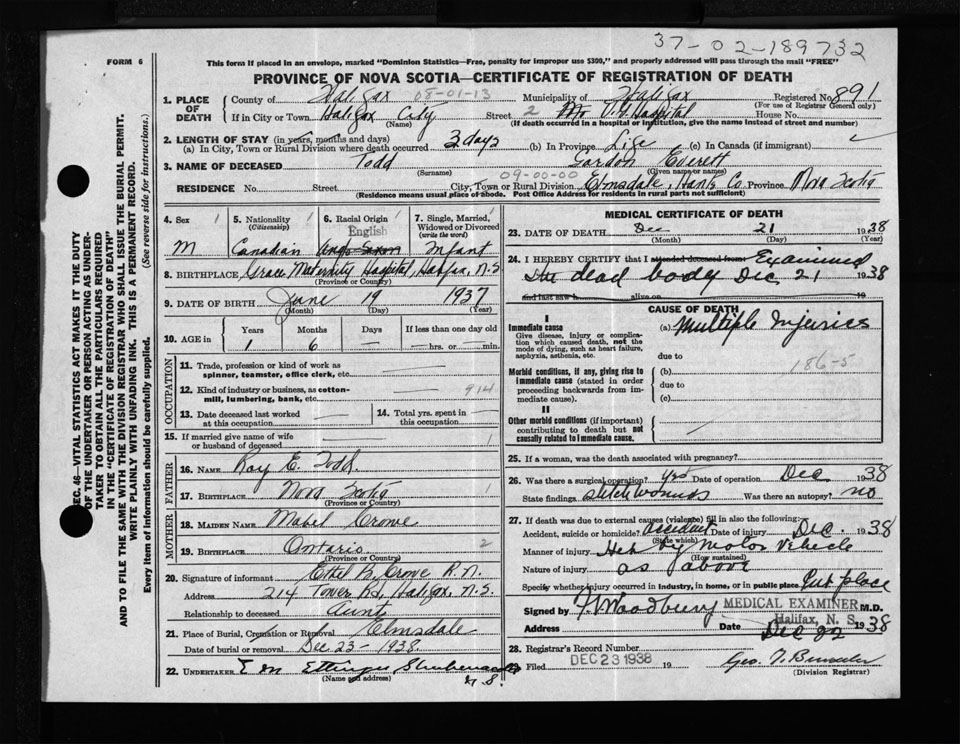 37-02-189732
FORM 6
This form if placed in an envelope, marked "Dominion Statistics—Free, penalty for improper use $300," and properly addressed will pass through the mail "FREE"
PROVINCE OF NOVA SCOTIA—CERTIFICATE OF REGISTRATION OF DEATH
SEC. 46—VITAL STATISTICS ACT MAKES IT THE DUTY
OF THE UNDERTAKER OR PERSON ACTING AS UNDER-
TAKER TO OBTAIN ALL THE PARTICULARS REQUIRED
IN THE "CERTIFICATE OF REGISTRATION OF DEATH"
AND TO FILE THE SAME WITH THE DIVISION REGISTRAR WHO SHALL ISSUE THE BURIAL PERMIT.
WRITE PLAINLY WITH UNFADING INK. THIS IS A PERMANENT RECORD.
Every item of information should be carefully supplied. (See reverse side for instructions.)
1. PLACE OF DEATH County of Halifax 08-01-13 Municipality of Halifax Registered No. 891
(For use of Registrar General only)
If in City or Town Halifax City Street 2 Hospital House No.
(Name)
(If death occurred in a hospital or institution, give the name instead of street and number)
2. LENGTH OF STAY (in years, months and days)
(a) In City, Town or Rural Division where death occurred 3 days (b) In Province Life (c) In Canada (if immigrant)
3. NAME OF DECEASED Todd Gordon Everett
(Surname) (Given name or names)
09-00-00
RESIDENCE No. Street City, Town or Rural Division Elmsdale, Hants Co. Province Nova Scotia
(Residence means usual place of abode. Post Office Address for residents in rural parts not sufficient)
4. Sex 1 5. Nationality 1 6. Racial Origin 1 7. Single, Married, 1
(Citizenship) English Widowed or Divorced
(write the word)
M Canadian Anglo Saxon Infant
8. BIRTHPLACE Grace Maternity Hospital, Halifax, N.S.
(Province or Country)
9. DATE OF BIRTH June 19 1937
(Month) (Day) (Year)
10. AGE in Years Months Days If less than one day old
1 6 — — hrs. or — min.
OCCUPATION
11. Trade, profession or kind of work as
spinner, teamster, office clerk, etc. —
12. Kind of industry or business, as cotton-
mill, lumbering, bank, etc. — 914
13. Date deceased last worked
at this occupation —
14. Total yrs. spent in
this occupation —
15. If married give name of wife
or husband of deceased 1
FATHER
16. NAME Roy E. Todd
17. BIRTHPLACE Nova Scotia 1
(Province or Country)
MOTHER
18. MAIDEN NAME Mabel Crowe
19. BIRTHPLACE Ontario 2
(Province or Country)
20. Signature of informant Ethel B. Crowe R.N.
Address 214 Tower Rd, Halifax, N.S.
Relationship to deceased Aunt
21. Place of Burial, Cremation or Removal Elmsdale
Date of burial or removal Dec 23-1938.
22. UNDERTAKER E M Ettinger Shubenacadie
(Name and address) N.S.
MEDICAL CERTIFICATE OF DEATH
23. DATE OF DEATH Dec 21 1938
(Month) (Day) (Year)
24. I HEREBY CERTIFY that I attended deceased from Examined
the dead body Dec 21 1938
and last saw h alive on 19
CAUSE OF DEATH
I
Immediate cause (a) Multiple Injuries
Give disease, injury or complica-
tion which caused death, not the
mode of dying, such as heart failure,
asphyxia, asthenia, etc.
due to
Morbid conditions, if any, giving rise to
immediate cause (stated in order
proceeding backwards from im-
mediate cause).
(b) 186-5
due to
(c)
II
Other morbid conditions (if important)
contributing to death but not
causally related to immediate cause.
25. If a woman, was the death associated with pregnancy?
26. Was there a surgical operation? yes Date of operation Dec 1938
State findings stitch wounds Was there an autopsy? no
27. If death was due to external causes (violence) fill in also the following:
Accident, suicide or homicide? accident Date of injury Dec. 1938
(State which)
Manner of injury Hit by motor vehicle
(How sustained)
Nature of injury as above
Specify whether injury occurred in industry, in home, or in public place Pub place
Signed by Woodbury MEDICAL EXAMINER M.D.
Halifax, N. S.
Address Date Dec 22 1938
28. Registrar's Record Number
Filed DEC 23 1938 19
(Division Registrar)